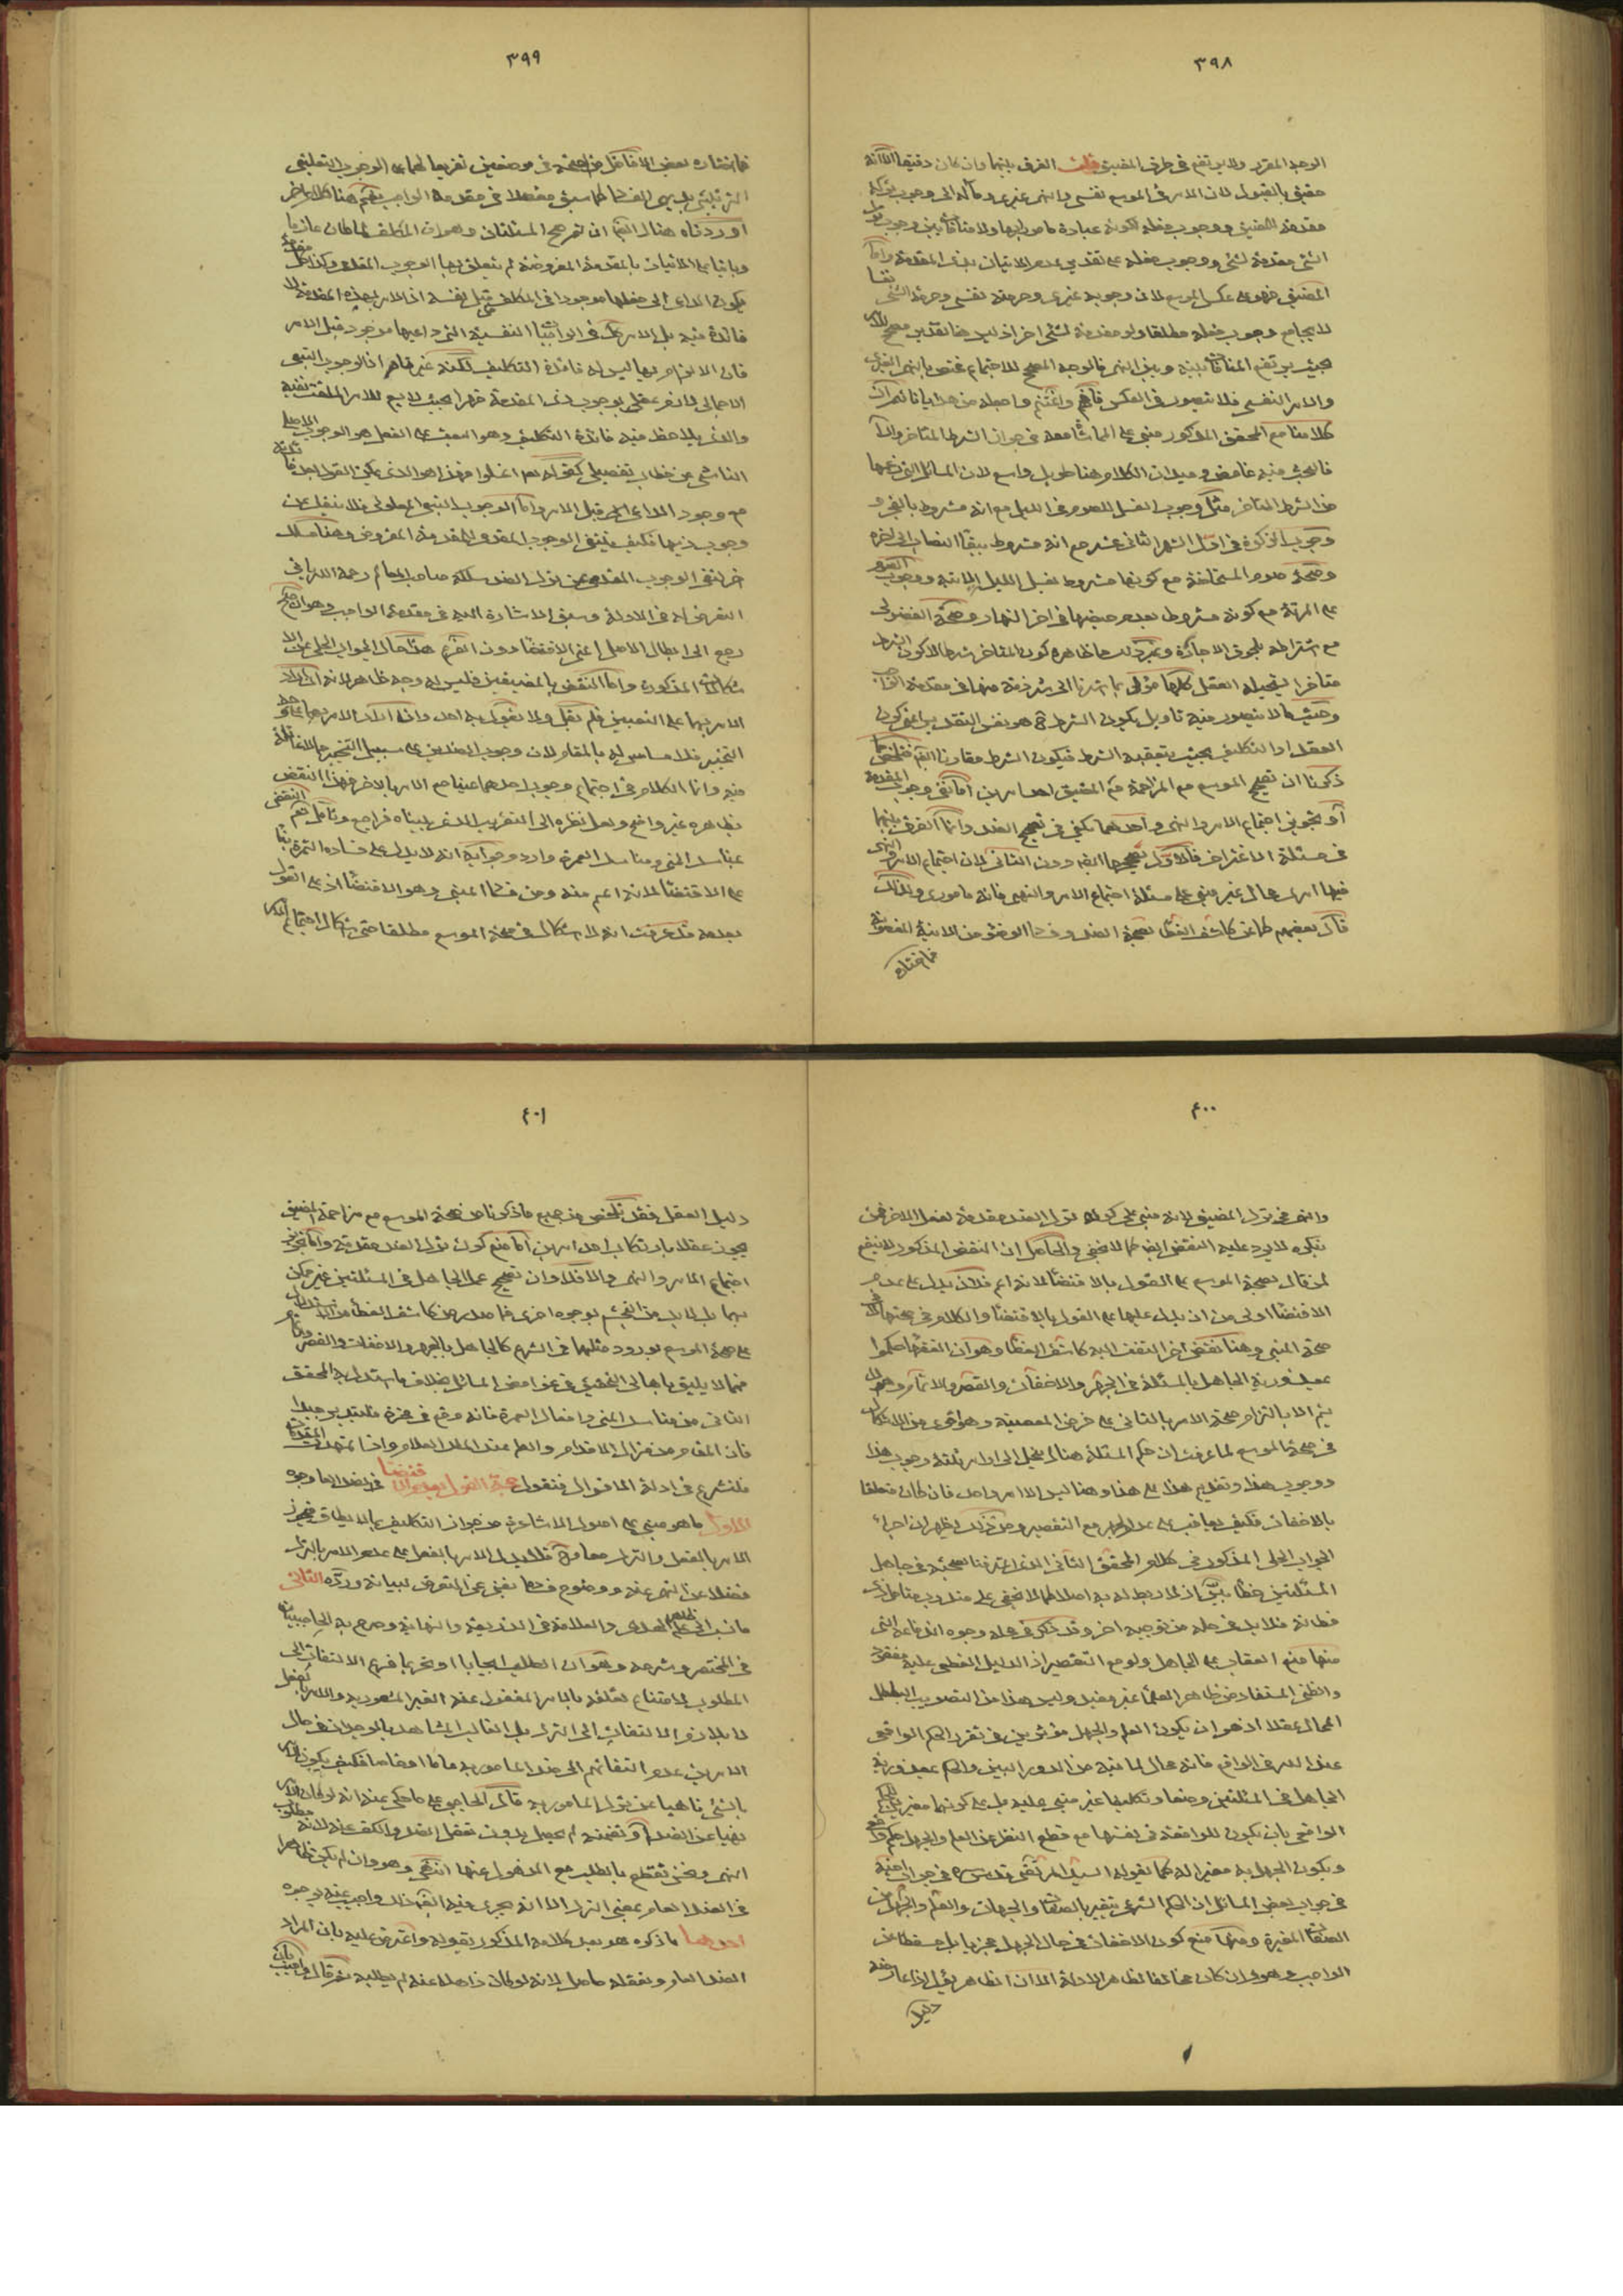 ٣٩٨
الوجه المقرر ولا يرتفع فى طرف المضيق قلت الفرق بينهما وان كان دقيقا الا انه
حقيق بالقبول لان الامر فى الموسع نفسى والنهى غيرى ومآله الى وجوب تركه
مقدمة للمضيق ووجوب فعله لكونه عبادة مامور بها ولا منافاة بين وجوب ترك
الشئ مقدمة لشئ ووجوب فعله على تقدير عدم الاتيان بذى المقدمة واما
المضيق فهو على عكس الموسع لان وجوبه غيرى وحرمته نفسى وحرمة الشئ نفسا
لا يجامع وجوب فعله مطلقا ولو مقدمة لشئ اخر اذ ليس هنا تقدير مصحح للامر
بحيث يرتفع المنافاة بينه وبين النهى فالوجه المصحح للاجتماع مختص بالنهى الغيرى
والامر النفسى فلا يتصور فى العكس فافهم واغتنم واجعله من هدايانا ثم ان
كلامنا مع المحقق المذكور مبنى على المماشاة معه فى جواز الشرط المتاخر والا
فالبحث فيه غامض وميدان الكلام هنا طويل واسع لان المسائل التى زعمها
من الشرط المتاخر مثل وجوب الغسل للصوم فى الليل مع انه مشروط بالفجر و
وجوب الزكوة فى اول الشهر الثانى عشر مع انه مشروط ببقاء النصاب الى اخره
وصحة صوم المستحاضة مع كونها مشروط بغسل الليل الاتية ووجوب الصوم
على المرئة مع كونه مشروط بعدم حيضها فى اخر النهار وصحة الفضولى
مع اشتراطه بلحوق الاجازة وغير ذلك مما ظاهره كون المتاخر شرطا لا كون الشرط
متاخرا ليحيله العقل كلها مؤل بما اشرنا الى شرذمة منها فى مقدمة الواجب
وحيث لا يتصور فيه تاويل يكون الشرط ح هو نفس التقدير اعنى كون
العقد او التكليف بحيث يتعقبه الشرط فيكون الشرط مقارنا ايضا فتلخص مما
ذكرنا ان تصحيح الموسع مع المزاحمة مع المضيق احد امرين اما نفى وجوب المقدمة
او تجويز اجتماع الامر والنهى واحدهما يكفى فى تصحيح الضد واما الفرق بينهما
فى مسئلة الاغتراف فالاول يصححها ايضا دون الثانى لان اجتماع الامر والنهى
فيها امرى محال غير مبنى على مسئلة اجتماع الامر والنهى فانه مامورى ولذلك
قال بعضهم كما عن كاشف الغطاء بصحة الضد وفساد الوضوء من الانية المغصوبة
فما اختاره
٣٩٩
فما اختاره بعض الافاضل من الصحة فى موضعين تفريعا لهما على الوجوب التعليقى
الترتبى بين الفساد كما سبق مفصلا فى مقدمة الواجب نعم هنا كلام اخر
اوردناه هناك ايضا ان تم صح المسئلتان وهو ان المكلف لما كان عازما
وبانيا على الاتيان بالمقدمة المفروضة لم يتعلق بها الوجوب المقدمى وكذا كل مقدمة
يكون الداعى الى فعلها موجودا فى المكلف من قبل نفسه اذ الامر بهذه المقدمة لا
فائدة فيه بل الامر كك فى الواجبات النفسية التى داعيها موجود قبل الامر
فان الالزام بها ليس له فائدة التكليف لكنه غير ظاهر اذ الوجوب التبعى
الاجمالى لازم عقلى لوجوب ذى المقدمة قهرا بحيث لا يسع للامر الملتفت نفيه
والذى يلاحظ فيه فائدة التكليف وهو البعث على الفعل هو الوجوب الاصلى
الناشى من خطاب تفصيلى كقوله نعم اغسلوا فهذا هو الذى يمكن القول بعدم فائدته
مع وجود الداعى اليه قبل الامر واما الوجوب التبعى المعلولى فلا ينفك عن
وجوب ذيها فكيف ينتفى الوجوب المقدمى للمقدمة المفروض وهنا مسلك
اخر لنفى الوجوب المقدمى عن ترك الضد سلكه صاحب المعالم رحمه الله فى
التعرض له فى الادلة وسبق الاشارة اليه فى مقدمة الواجب وهو ان صح
رجع الى ابطال الاصل اعنى الاقتضاء دون الثمرة هذا حال الجواب الحلى عن الا
شكالات المذكورة واما النقض بالمضيقين فليس له وجه ظاهر لانه ان اراد
الامر بهما على التعيين فلم نقل ولا يقول به احد وان اراد الامر بهما على وجه
التخيير فلا مساس له بالمقام لان وجوب الضدين على سبيل التخيير مما لا غائلة
فيه وانما الكلام فى اجتماع وجوب احدهما عينا مع الامر بالاخر فهذا النقض
بظاهره غير واضح ولعل نظره الى التقريب الذى بيناه فراجع وتامل نعم النقض
بمناسك المنى ومناسك العمرة وارد وجوابه انه لا يدل على فساده الثمرة بناء
على الاقتضاء لانه اعم منه ومن فساد المبنى وهو الاقتضاء اذ على القول
بعدمه قد عرفت انه لا اشكال فى صحة الموسع مطلقا حتى اشكال اجتماع الامر
٤٠٠
والنهى فى ترك المضيق لانه مبنى على كون ترك الضد مقدمة لفعل الاخر فمن
ينكره لا يرد عليه النقض ايضا كما لا يخفى والحاصل ان النقض المذكور لا ينفع
لمن قال بصحة الموسع على القول بالاقتضاء لانه اعم فلان يدل على عدم
الاقتضاء اولى من ان يدل عليها على القول بالاقتضاء والكلام فى صحتها لا فى
صحة المبنى وهنا نقض اخر التفت اليه كاشف الغطاء وهو ان الفقهاء حكموا
بمعذورية الجاهل بالمسئلة فى الجهر والاخفات والقصر والاتمام وهو لا
يتم الا بالتزام صحة الامر بالثانى على فرض المعصية وهو اقوى من الاشكال
فى صحة الموسع لما عرفت ان حكم المسئلة هناك ينحل الى اوامر ثلثة وجوب هذا
ووجوب هذا وتقديم هذا على هذا وهنا ليس الا امر واحد فان كان متعلقا
بالاخفات فكيف يعاقب على عدم الجهر مع التقصير ومن ذلك يظهر ان اجراء
الجواب الحلى المذكور فى كلام المحقق الثانى الذى اعترفنا بصحته فى جاهل
المسئلتين خطاء بين اذ لا ربط له به اصلا كما لا يخفى على من له ادنى تامل وذى
فطانة فلا بد فى حله من توجيه اخر وقد ذكر فى محله وجوه اندفاعه التى
منها منع العقاب على الجاهل ولو مع التقصير اذ الدليل القطعى عليه مفقود
والظنى المستفاد من ظاهر العلماء غير مفيد وليس هذا من التصويب الباطل
المحال عقلا اذ هو ان يكون العلم والجهل مؤثرين فى تقرر الحكم الواقعى
عند الله فى الواقع فانه محال لما فيه من الدور البين والحكم بمعذورية
الجاهل فى المسئلتين وضعا وتكليفا غير مبنى عليه بل على كونهما مغيرين للحكم
الواقعى بان يكون للواقعة فى نفسها مع قطع النظر عن العلم والجهل حكم واقعى
ويكون الجهل به مغيرا له كما يقوله السيد المرتضى قدس سره فى جواب اخيه
فى جواب بعض المسائل ان الحكم الشرعى يتغير بالصفات والجهات والعلم والجهل من
الصفات المغيرة ومنها منع كون الاخفات فى حال الجهل مجزيا بل مسقطا عن
الواجب وهو وان كان مخالفا لظاهر الادلة الا ان الظاهر يؤل اذا عارضه
دليل
٤٠١
دليل العقل فقد تلخص من جميع ما ذكرنا من صحة الموسع مع مزاحمة المضيق
يجوز عقلا بارتكاب احد امرين اما منع كون ترك الضد مقدمة واما تجويز
اجتماع الامر والنهى والا فلا وان تصحيح عمل الجاهل فى المسئلتين غير ممكن
بهما بل لا بد من التجشم بوجوه اخرى فما صدر من كاشف الغطاء من الاستدلال
على صحة الموسع بورود مثلها فى الشرع كالجاهل بالجهر والاخفات والقصر والاتمام
فمما لا يليق باهالى التحقيق فى غوامض المسائل بخلاف ما استدل به المحقق
الثانى من مناسك المنى وافعال العمرة فانه وقع فى محزه فليتدبر جيدا
فان المقام من مزال الاقدام والعلم عند الملك العلام واذا تمهدت المقدمات
فلنشرع فى ادلة الاقوال فنقول حجة القول بعدم الاقتضاء فى الضد العام وجوه
الاول ما هو مبنى على اصول الاشاعرة من جواز التكليف بما لا يطاق فيجوز
الامر بالفعل والترك معا وح فلا يدل الامر بالفعل على عدم الامر بالترك
فضلا عن النهى عنه ووضوح فساده يغنى عن التعرض لبيانه ورده الثانى
ما نسب الى علم الهدى والعلامة فى الذريعة والنهاية وصرح به الحاجبيان
فى المختصر وشرحه وهو ان الطلب ايجابا او تحريما فرع الالتفات الى
المطلوب لامتناع تعلقه بالامر المغفول عنه الغير المشعور به والامر بالفعل
لا يلازم الالتفات الى الترك بل الغالب المشاهد بالوجدان فى حال
الامرين عدم التفاتهم الى ضد المامور به عاما او خاصا فكيف يكون الامر
بالشئ ناهيا عن ترك المامور به قال الحاجبى على ما حكى عنه انه لو كان الامر
نهيا عن الضد او تضمنه لم يحصل بدون تعقل الضد والكف عنه لانه مطلوب
النهى ونحن نقطع بالطلب مع الذهول عنها انتهى وهو وان لم يكن ظاهرا
فى الضد العام بمعنى الترك الا انه يجرى فيه ايضا كذلك واجيب عنه بوجوه
احدها ما ذكره هو بعد كلامه المذكور بقوله واعترض عليه بان المراد
الضد العام وتعقله حاصل لانه لو كان ذاهلا عنه لم يطلبه ثم قال واجيب بان